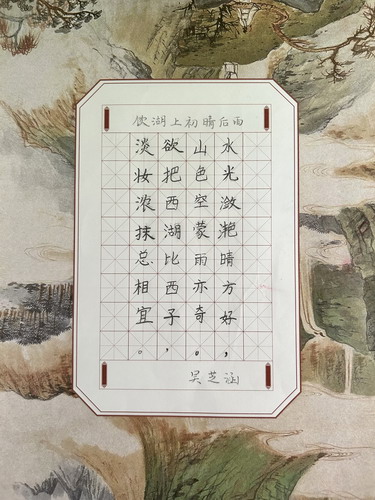 饮湖上初晴后雨
水光潋滟晴方好，
山色空蒙雨亦奇。
欲把西湖比西子，
淡妆浓抹总相宜。
吴芝涵